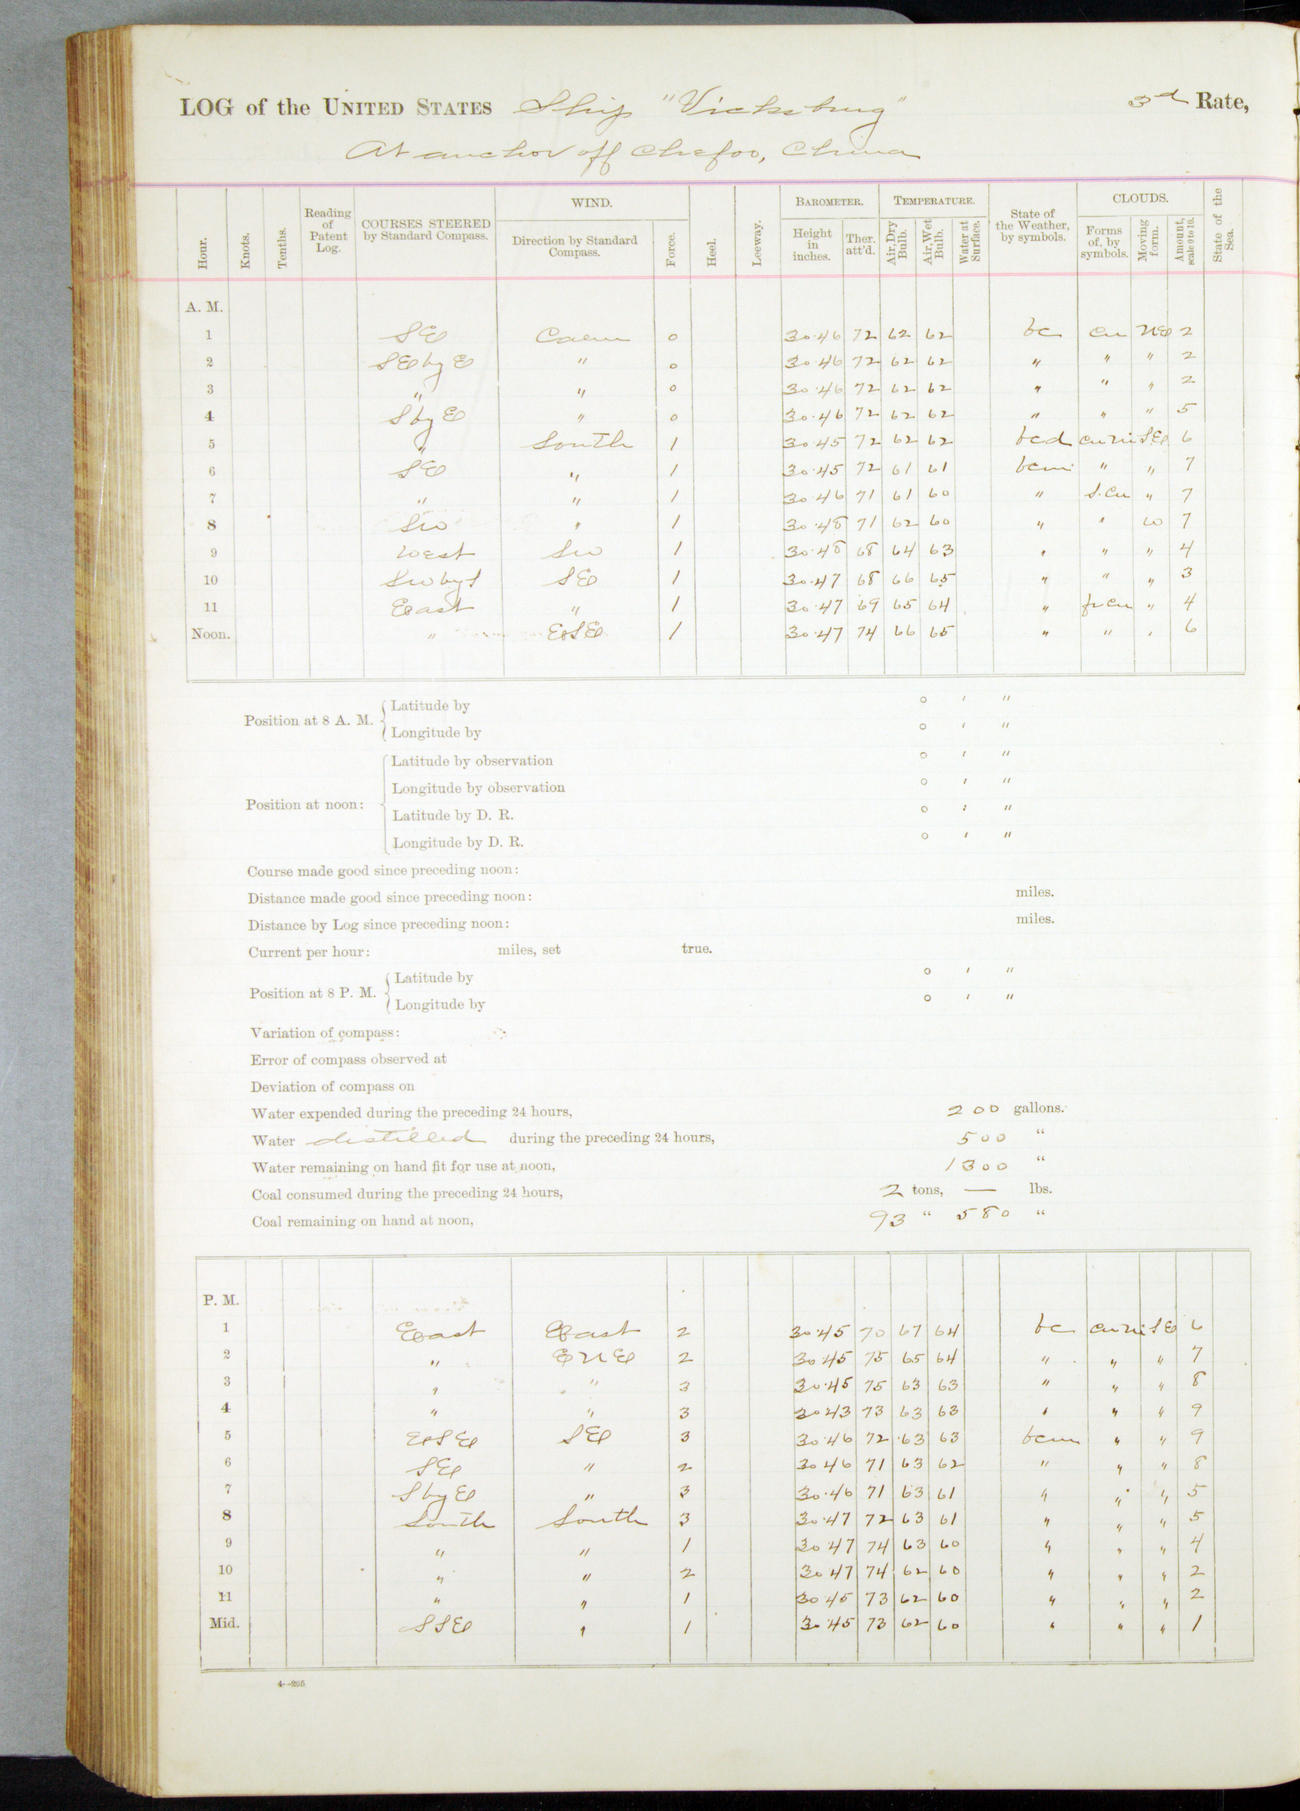 LOG of the UNITED STATES Ship "Vicksburg" 3rd Rate,
At anchor off Chefoo, China
Hour. Knots. Tenths. Reading of Patent Log. COURSES STEERED by Standard Compass. WIND. Direction by Standard Compass. Force. Heel. Leeway. BAROMETER. Height in inches. Ther. att'd. TEMPERATURE. Air, Dry Bulb. Air, Wet Bulb. Water at Surface. State of the Weather, by symbols. CLOUDS. Forms of, by symbols. Moving form. Amount, scale 0 to 10. State of the Sea.
A. M.
1 SE Calm 0 30.46 72 62 62 bc cu NE 2
2 SE by E " 0 30.46 72 62 62 " " " 2
3 " " 0 30.46 72 62 62 " " " 2
4 S by E " 0 30.46 72 62 62 " " " 5
5 " South 1 30.45 72 62 62 bcd cu ni SE 6
6 SE " 1 30.45 72 61 61 bcm " " 7
7 " " 1 30.46 71 61 60 " S.cu " 7
8 SW " 1 30.48 71 62 60 " " W 7
9 West SW 1 30.48 68 64 63 " " " 4
10 SW by S SE 1 30.47 68 66 65 " " " 3
11 East " 1 30.47 69 65 64 " fr cu " 4
Noon. " ESE 1 30.47 74 66 65 " " " 6
Position at 8 A. M. Latitude by ° ′ ″
Longitude by ° ′ ″
Position at noon: Latitude by observation ° ′ ″
Longitude by observation ° ′ ″
Latitude by D. R. ° ′ ″
Longitude by D. R. ° ′ ″
Course made good since preceding noon:
Distance made good since preceding noon: miles.
Distance by Log since preceding noon: miles.
Current per hour: miles, set true.
Position at 8 P. M. Latitude by ° ′ ″
Longitude by ° ′ ″
Variation of compass:
Error of compass observed at
Deviation of compass on
Water expended during the preceding 24 hours, 200 gallons.
Water distilled during the preceding 24 hours, 500 "
Water remaining on hand fit for use at noon, 1300 "
Coal consumed during the preceding 24 hours, 2 tons, — lbs.
Coal remaining on hand at noon, 93 " 580 "
P. M.
1 East East 2 30.45 70 67 64 bc cu ni SE 6
2 " ENE 2 30.45 75 65 64 " " " 7
3 " " 3 30.45 75 63 63 " " " 8
4 " " 3 3043 73 63 63 " " " 9
5 ESE SE 3 30.46 72 63 63 bcm " " 9
6 SE " 2 3046 71 63 62 " " " 8
7 S by E " 3 30.46 71 63 61 " " " 5
8 South South 3 30.47 72 63 61 " " " 5
9 " " 1 3047 74 63 60 " " " 4
10 " " 2 3047 74 62 60 " " " 2
11 " " 1 3045 73 62 60 " " " 2
Mid. SSE " 1 30.45 73 62 60 " " " 1
4--295